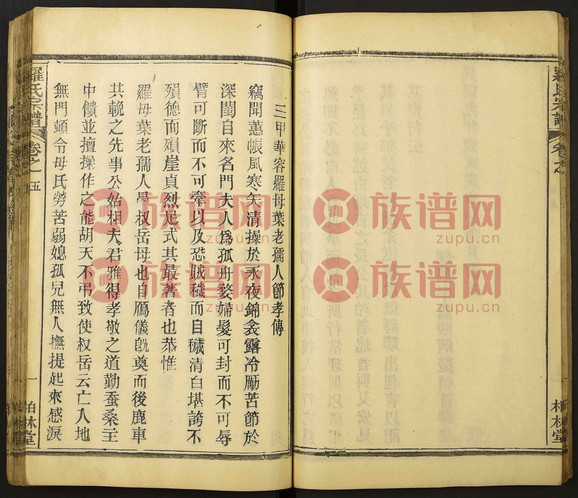 三甲華容羅母葉老孺人節孝傳
竊聞蕙帳風寒矢清操於永夜錦衾露冷勵苦節於
深閨自來名門夫人為孤舟嫠婦髮可封而不可辱
臂可斷而不可牽以及恐賊穢而自穢清白堪誇不
殞德而殞崖貞烈足式其最著者也恭惟
羅母葉老孺人星權岳母也自鴈儀旣奠而後鹿車
共輓之先事公姑相夫君雅得孝敬之道勤蚕桑主
中饋並擅操作之能胡天不弔致使權岳云亡人地
無門頓令母氏勞苦弱媳孤兒無人撫提起來感淚
羅氏宗譜
卷之五
一
柏林堂
羅氏宗譜
卷之
柏林堂
族谱网
zupu.cn
族谱网
zupu.cn
族谱网
zupu.cn
族谱网
zupu.cn